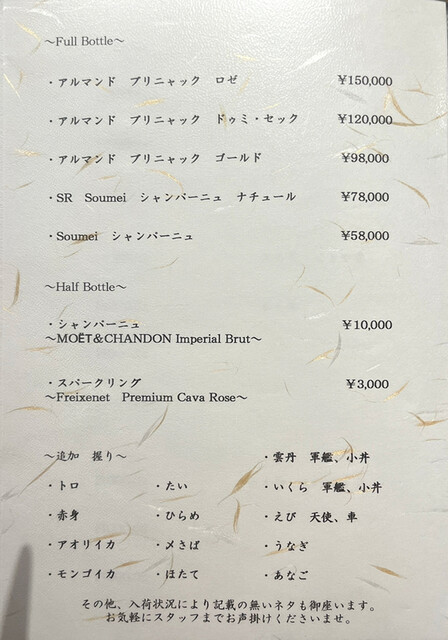 ～Full Bottle～
・アルマンド ブリニャック ロゼ ￥150,000
・アルマンド ブリニャック ドゥミ・セック ￥120,000
・アルマンド ブリニャック ゴールド ￥98,000
・SR Soumei シャンパーニュ ナチュール ￥78,000
・Soumei シャンパーニュ ￥58,000
～Half Bottle～
・シャンパーニュ ￥10,000
～MOËT&CHANDON Imperial Brut～
・スパークリング ￥3,000
～Freixenet Premium Cava Rose～
～追加 握り～ ・雲丹 軍艦、小丼
・トロ ・たい ・いくら 軍艦、小丼
・赤身 ・ひらめ ・えび 天使、車
・アオリイカ ・〆さば ・うなぎ
・モンゴイカ ・ほたて ・あなご
その他、入荷状況により記載の無いネタも御座います。
お気軽にスタッフまでお声掛けくださいませ。